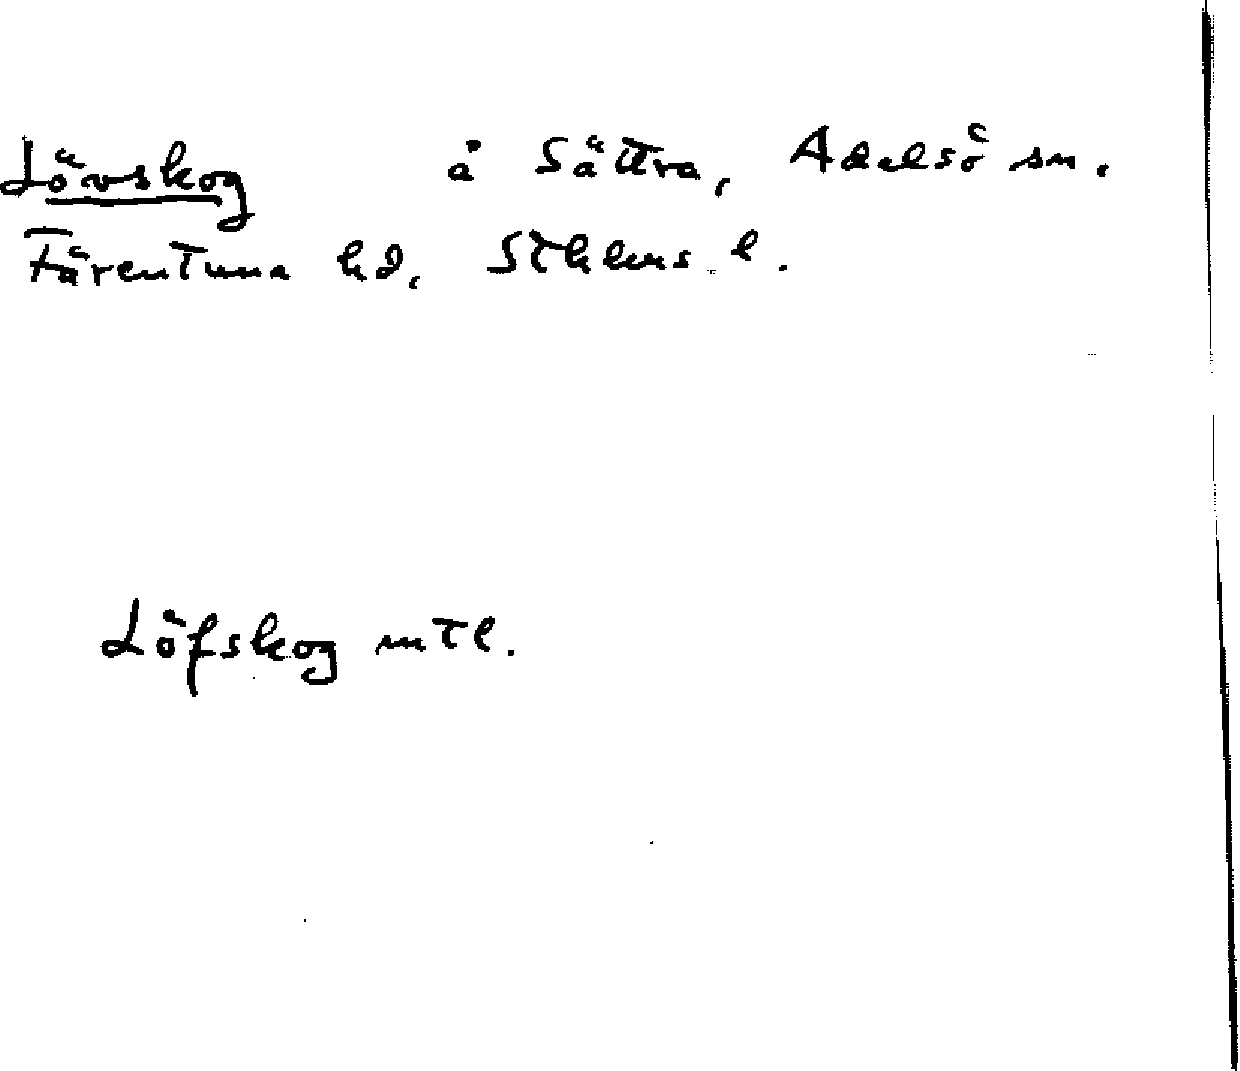 Lövskog å Sättra, Adelsö sn.
Färentuna hd, Sthlms l.
Löfskog mtl.